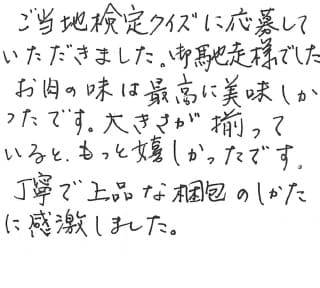 ご当地検定クイズに応募して
いただきました。御馳走様でした
お肉の味は最高に美味しか
ったです。大きさが揃って
いると、もっと嬉しかったです。
丁寧で上品な梱包のしかた
に感激しました。